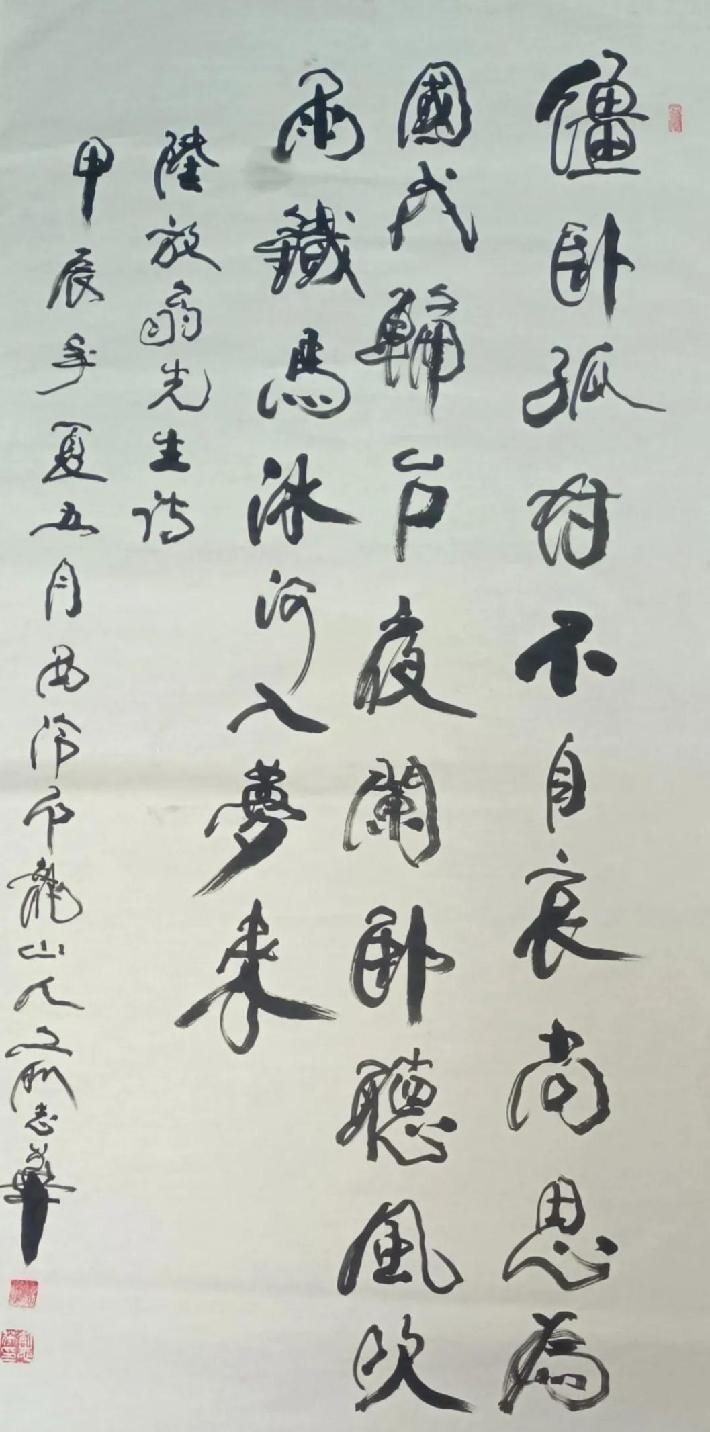 僵卧孤村不自哀尚思為
國戍輪台夜闌卧聽風吹
雨鐵馬冰河入夢來
陸放翁先生诗
甲辰年夏五月西泠印龍山人志華